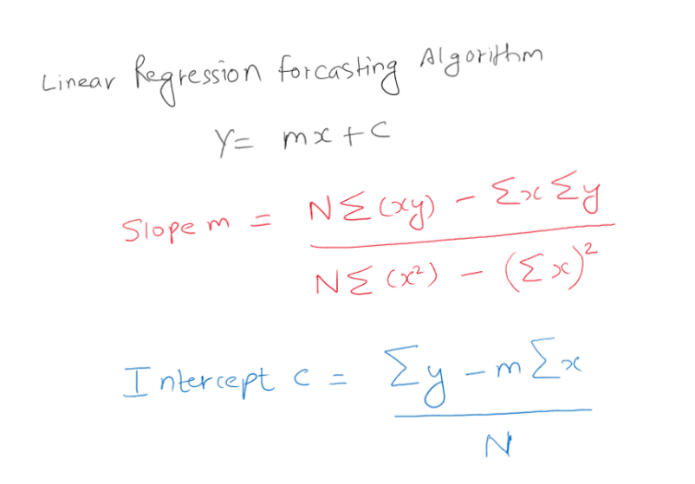 Linear Regression forcasting Algorithm
Y= mx + C
Slope m = NΣ(xy) - Σx Σy
NΣ(x²) - (Σx)²
Intercept c = Σy - m Σx
N